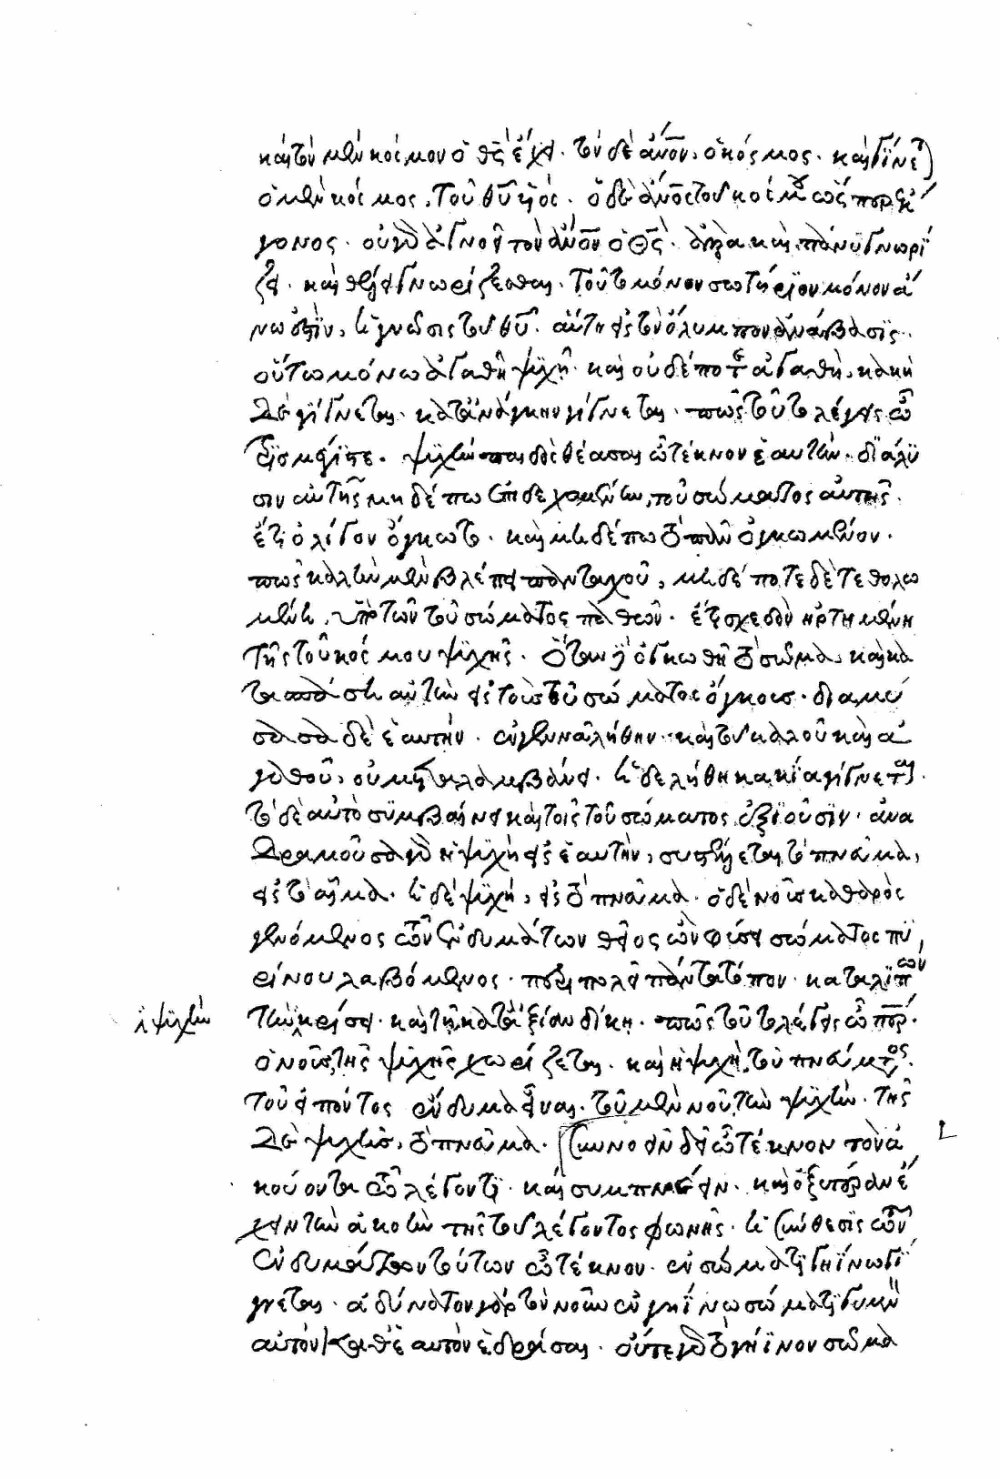 καὶ τὸν μὲν κόσμον ὁ θς ἔχει· τὸν δὲ ἄνον, ὁ κόσμος· καὶ γίνεται
ὁ μὲν κόσμος, τοῦ θυ υἱός· ὁ δὲ ἄνος τοῦ κόσμου ὥσπερ ἔκ
γονος· οὐ γὰρ ἀγνοεῖ τὸν ἄνον ὁ θς· ἀλλὰ καὶ πάνυ γνωρί
ζει· καὶ θέλει γνωρίζεσθαι· τοῦτο μόνον σωτήριον μόνον ἀ
νω ἐστὶν, ἡ γνῶσις τοῦ θυ· αὕτη εἰς τὸν ὄλυμπον ἀνάβασις·
οὕτω μόνω ἀγαθὴ ψυχὴ· καὶ οὐδέποτε ἀγαθὴ, κακὴ
δὲ γίγνεται· κατ' ἀνάγκην γίγνεται· πῶς τοῦτο λέγεις ὦ
τρισμέγιστε· ψυχὴν παιδὸς θέασαι ὦ τέκνον ἑαυτὴν· διάλυ
σιν αὐτῆς μηδέπω ἐπιδεχομένην, τοῦ σώματος αὐτῆς·
ἔτι ὀλίγον ὄγκωτο· καὶ μηδέπω τὸ πᾶν ὀγκωμένον·
πῶς καλὴν μὲν βλέπει πανταχοῦ, μηδέποτε δὲ τεθολω
μένην, ὑπὸ τῶν τοῦ σώματος παθῶν· ἔτι σχεδὸν ἠρτημένη
τῆς τοῦ κόσμου ψυχῆς· ὅταν δὲ ὀγκωθῇ τὸ σῶμα, καὶ κα
τασπάσῃ αὐτὴν εἰς τοὺς τοῦ σώματος ὄγκους· διαλύ
σασα δὲ ἑαυτήν· ἐγγεννᾶ λήθην· καὶ τοῦ καλοῦ καὶ ἀ
γαθοῦ, οὐ μεταλαμβάνει· ἡ δὲ λήθη κακία γίγνεται·
τὸ δὲ αὐτὸ συμβαίνει καὶ τοῖς τοῦ σώματος ἐξιοῦσιν· ἀνα
δραμοῦσα γὰρ ἡ ψυχὴ εἰς ἑαυτήν, συστέλλεται τὸ πνεῦμα,
εἰς τὸ αἷμα· ἡ δὲ ψυχή, εἰς τὸ πνεῦμα· ὁ δὲ νοῦς καθαρὸς
γενόμενος τῶν ἐνδυμάτων θεῖος ὢν φύσει σώματος πυ
ρίνου λαβόμενος· περιπολεῖ πάντα τόπον· καταλιπὼν
τὴν ψυχὴν κρίσει· καὶ τῇ κατ' ἀξίαν δίκῃ· πῶς τοῦτο λέγεις ὦ πάτερ·
ὁ νοῦς τῆς ψυχῆς χωρίζεται· καὶ ἡ ψυχὴ, τοῦ πνεύματος·
τοῦ εἰπόντος ἔνδυμα εἶναι· τοῦ μὲν νοῦ, τὴν ψυχὴν· τῆς
δὲ ψυχῆς, τὸ πνεῦμα· συννοεῖν δεῖ ὦ τέκνον τὸν ἀ
κούοντα τῷ λέγοντι· καὶ συμπνέειν· καὶ ὀξυτέραν ἔ
χειν τὴν ἀκοὴν τῆς τοῦ λέγοντος φωνῆς· ἡ σύνθεσις τῶν
ἐνδυμάτων τούτων ὦ τέκνον· ἐν σώματι γηΐνῳ γί
γνεται· ἀδύνατον γὰρ τὸν νοῦν ἐν γηΐνῳ σώματι γυμνὸν
αὐτὸν καθ' ἑαυτὸν ἑδράσαι· οὔτε γὰρ τὸ γήϊνον σῶμα